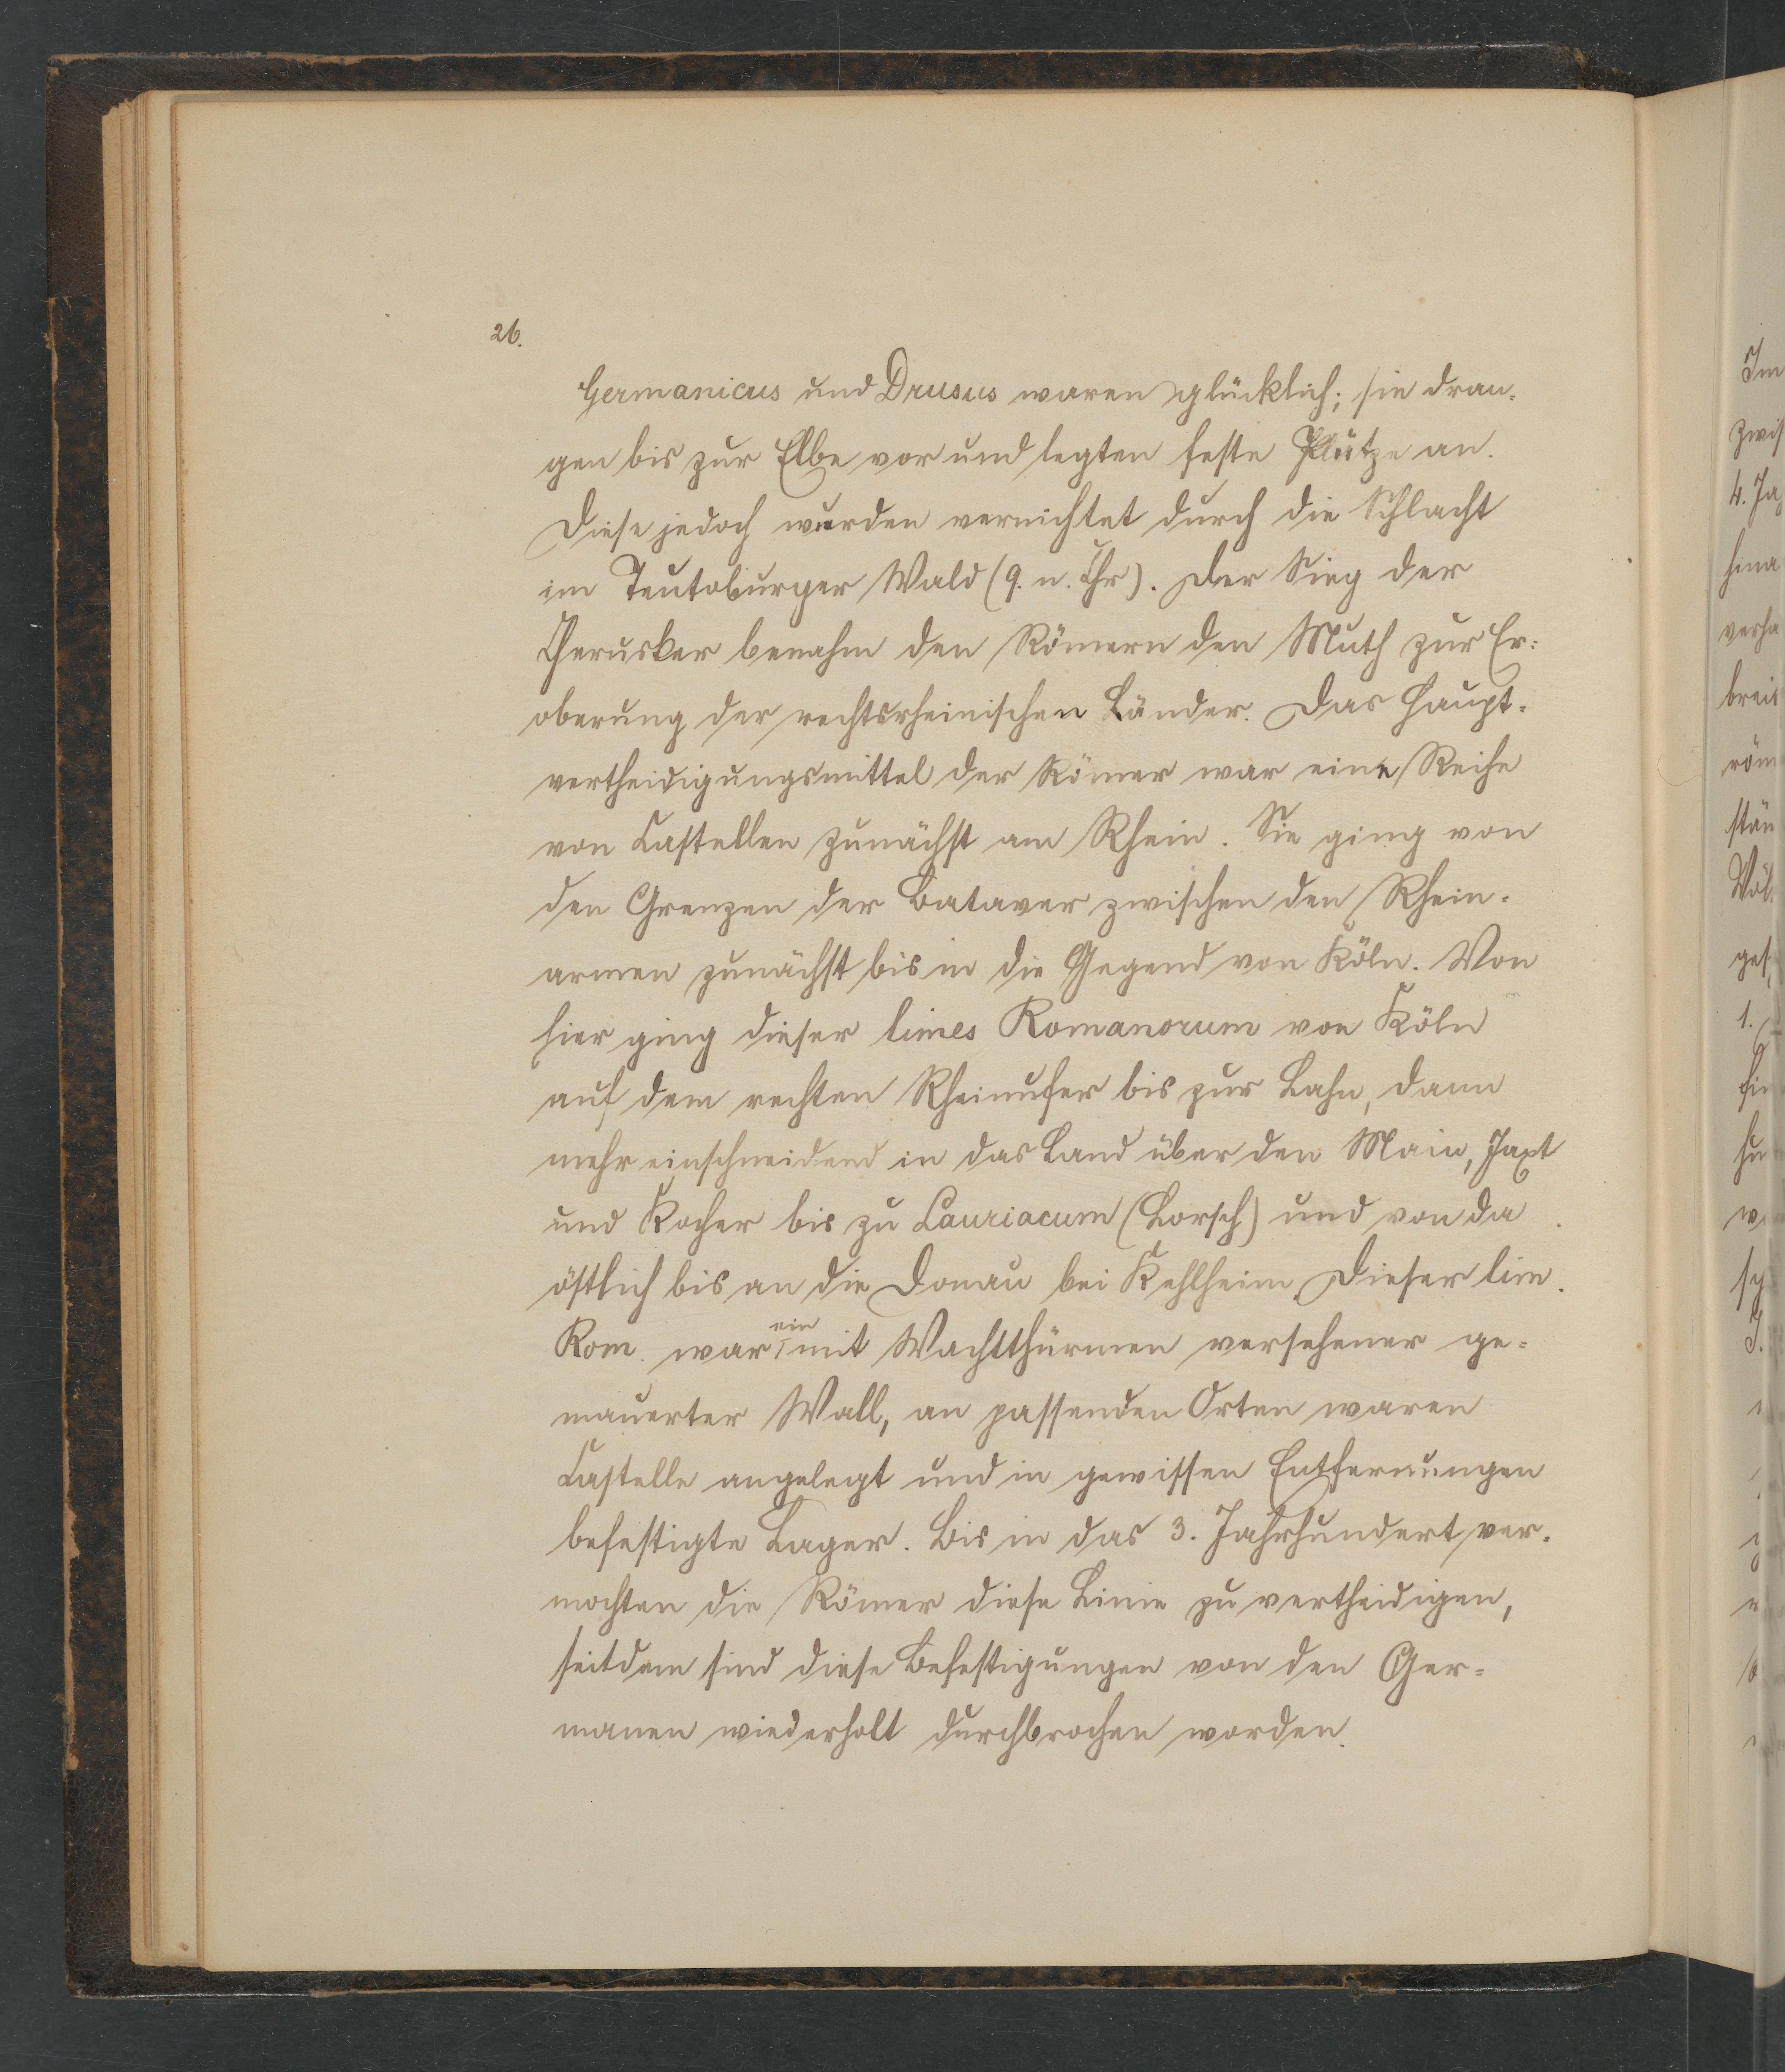 26.
Germanicus und Drusus waren glücklich; sie dran-
gen bis zur Elbe vor und legten feste Plätze an.
Diese jedoch wurden vernichtet durch die Schlacht
im Teutoburger Wald (9. n. Chr). Der Sieg der
Cherusker benahm den Römern den Muth zur Er-
oberung der rechtsrheinischen Länder. Das Haupt-
vertheidigungsmittel der Römer war eine Reihe
von Castellen zunächst am Rhein. Sie ging von
den Grenzen der Bataver zwischen den Rhein-
armen zunächst bis in die Gegend von Köln. Von
hier ging dieser limes Romanorum von Köln
auf dem rechten Rheinufer bis zur Lahn, dann
mehr einschneidend in das Land über den Main, Jaxt
und Kocher bis zu Lauriacum (Lorsch) und von da
östlich bis an die Donau bei Kehlheim. Dieser lim.
Rom. war ein mit Wachtthürmen versehener ge-
mauerter Wall, an passenden Orten waren
Castelle angelegt und in gewissen Entfernungen
befestigte Lager. Bis in das 3. Jahrhundert ver-
mochten die Römer diese Linie zu vertheidigen,
seitdem sind diese Befestigungen von den Ger-
manen wiederholt durchbrochen worden.
Im
zwis
4. Ja
hina
verha
breis
röm
stän
ges
1.